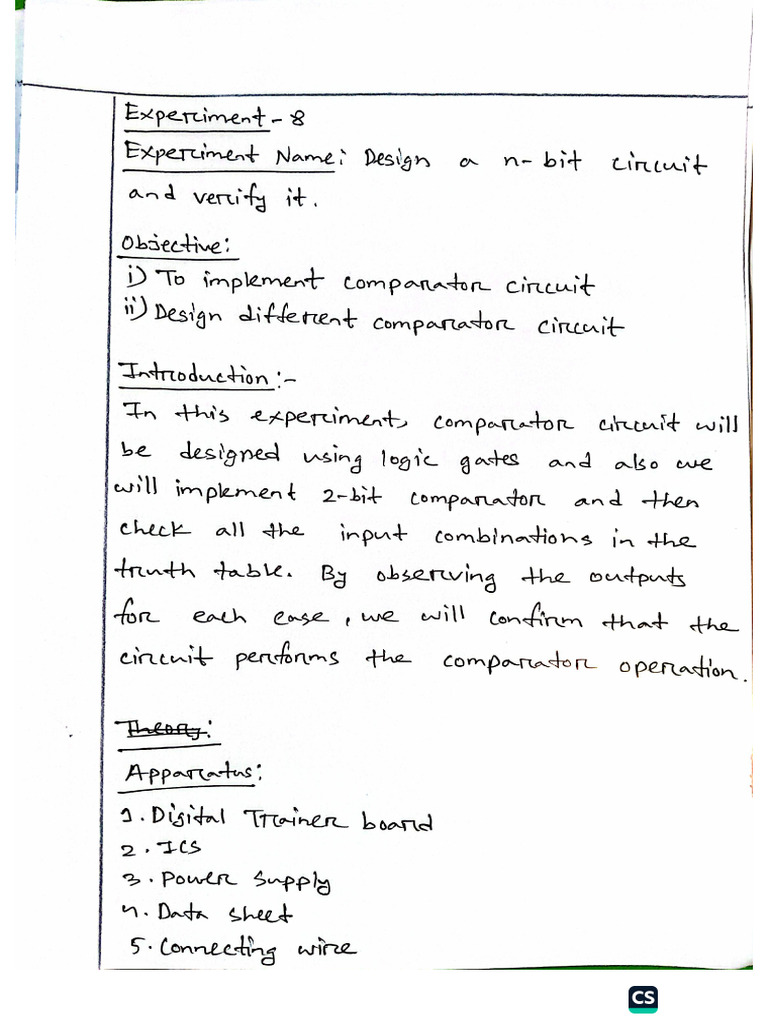 Experiment - 8
Experiment Name: Design a n-bit circuit
and verify it.
Objective:
i) To implement comparator circuit
ii) Design different comparator circuit
Introduction:-
In this experiment, comparator circuit will
be designed using logic gates and also we
will implement 2-bit comparator and then
check all the input combinations in the
truth table. By observing the outputs
for each case, we will confirm that the
circuit performs the comparator operation.
Theory:
Apparatus:
1. Digital Trainer board
2. ICS
3. Power Supply
4. Data sheet
5. Connecting wire
CS